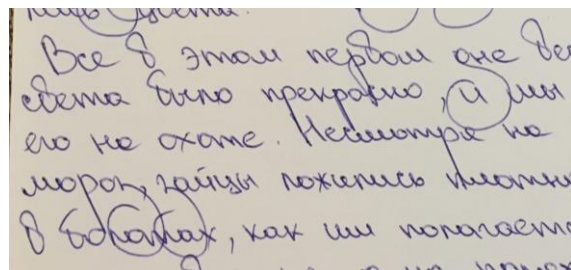 цвета.
Все в этом первом дне вес
света было прекрасно, и мы
его на охоте. Несмотря на
мороз, зайцы ложились плотно
в болотах, как им полагаетс